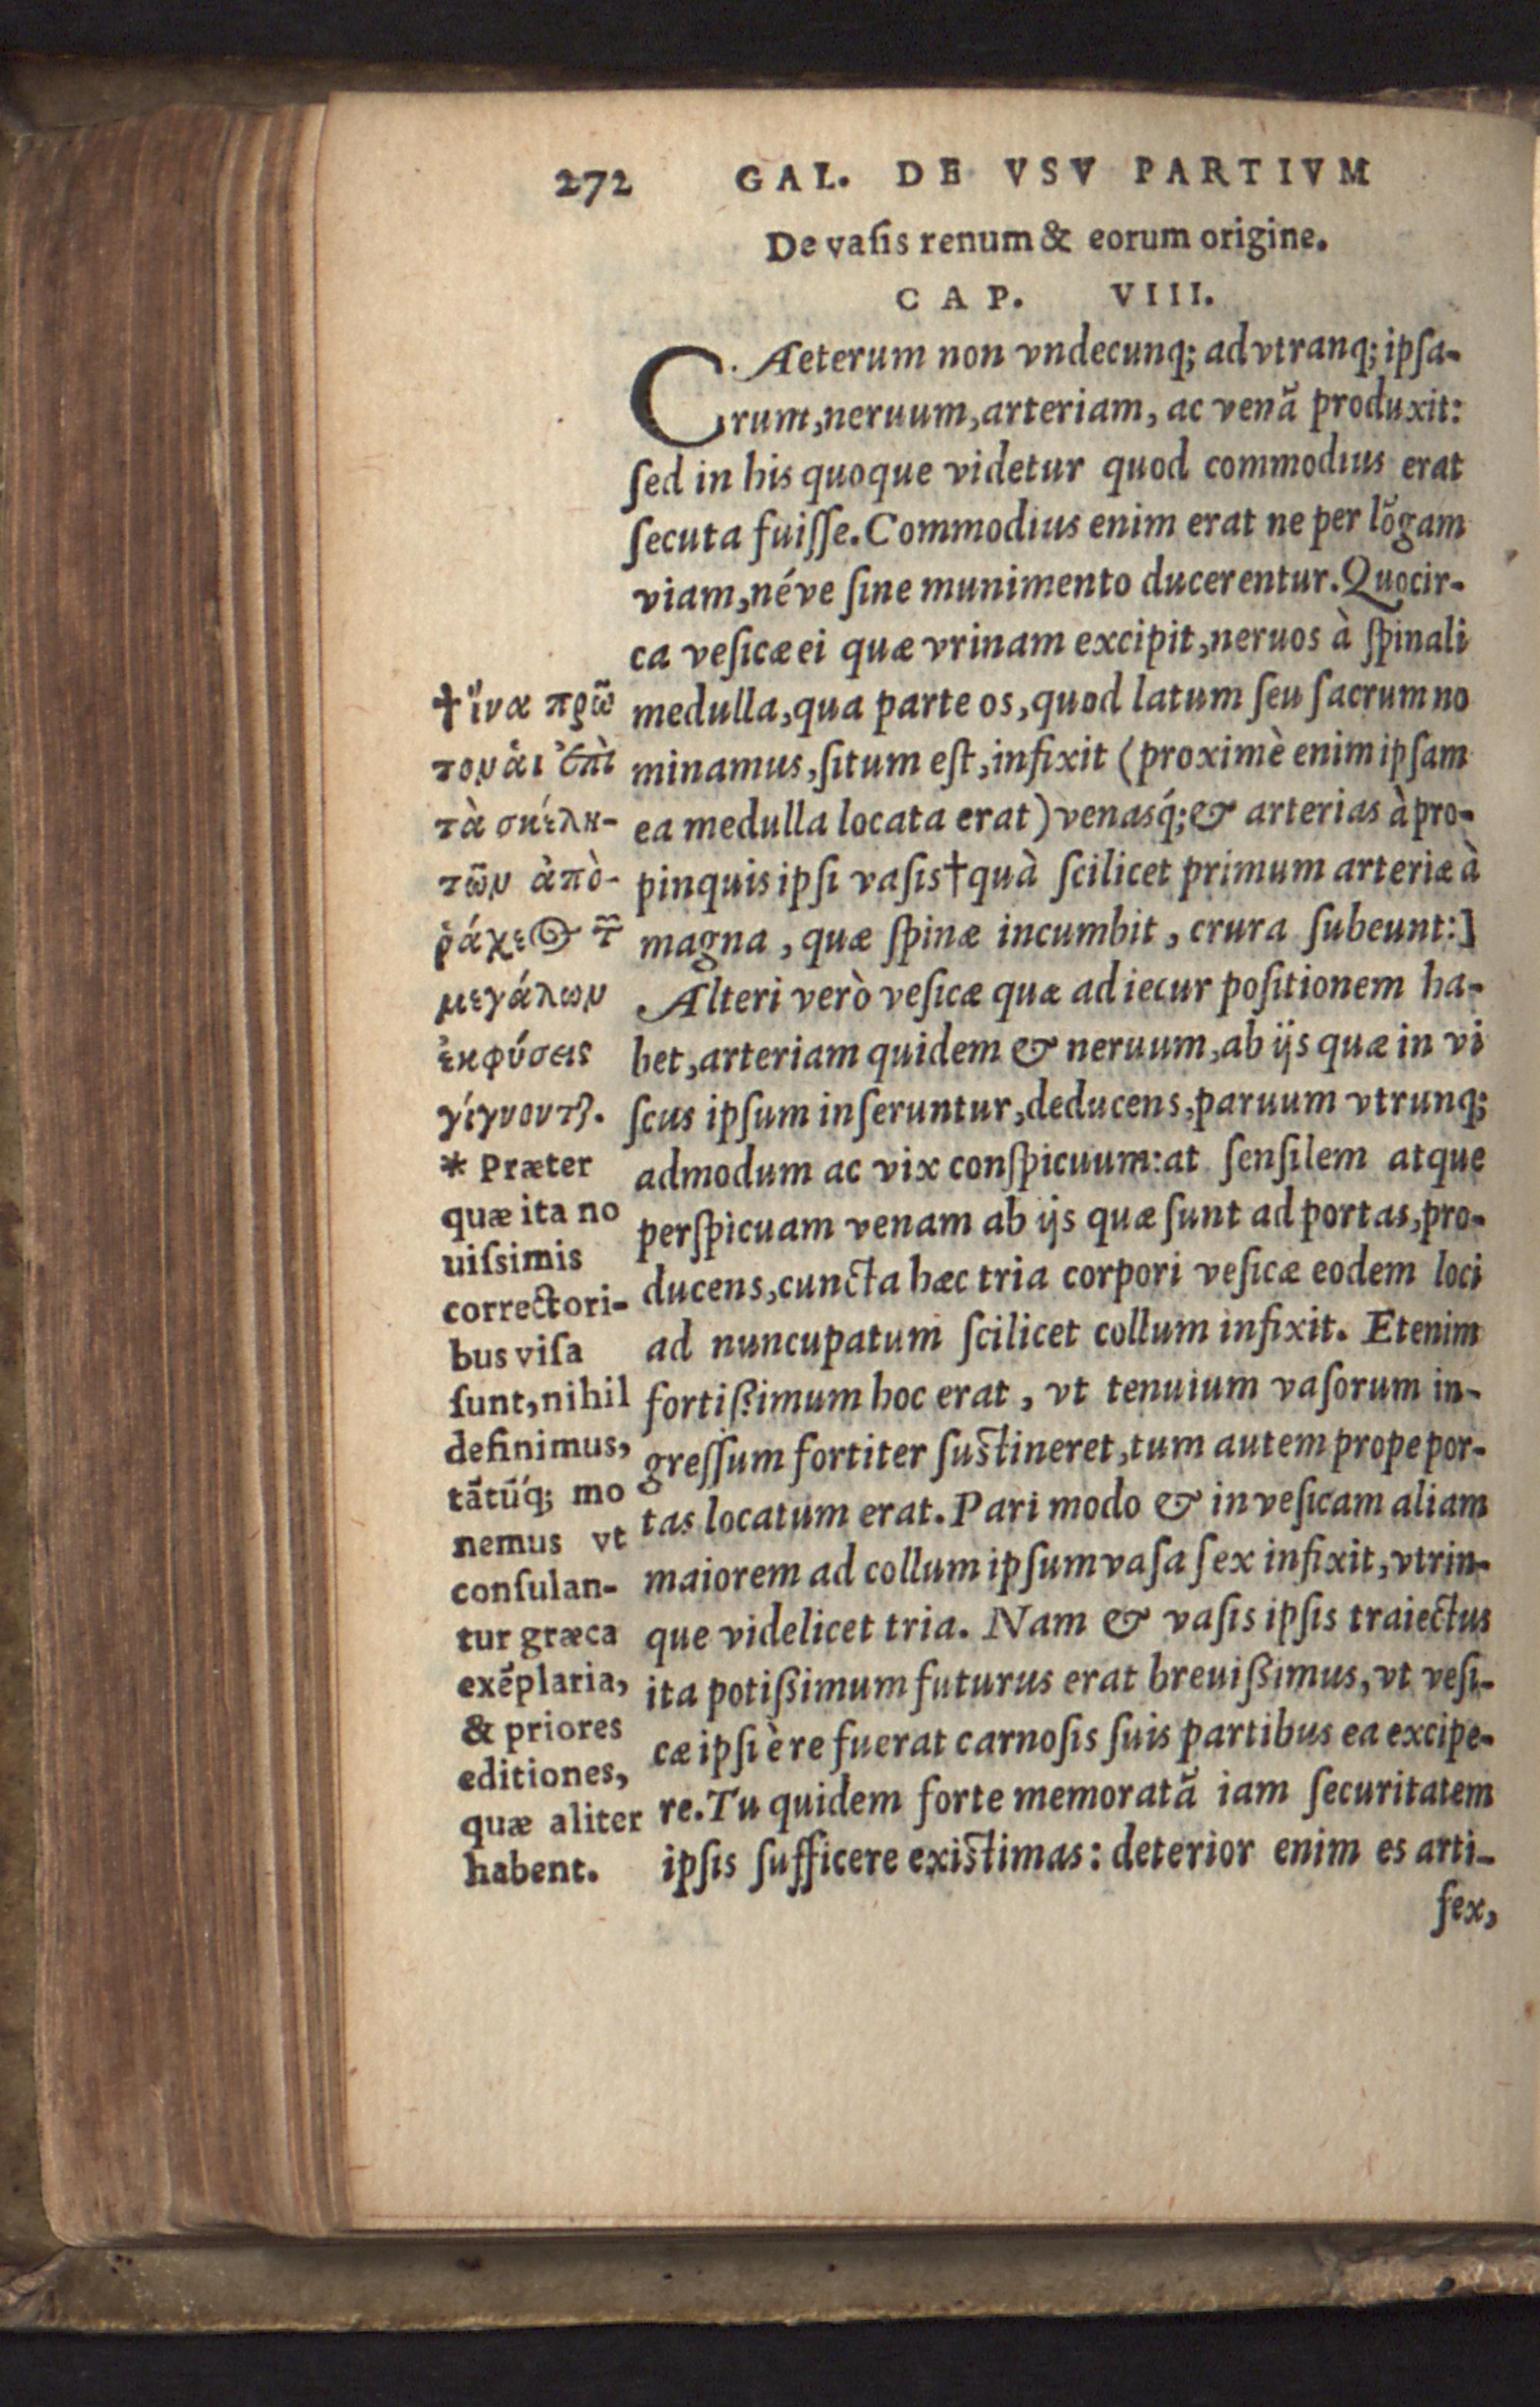 272 GAL. DE VSV PARTIVM
De vaſis renum & eorum origine.
CAP. VIII.
CAeterum non vndecunq; ad vtranq; ipſa-
rum, neruum, arteriam, ac venã produxit:
ſed in his quoque videtur quod commodius erat
ſecuta fuiſſe. Commodius enim erat ne per lõgam
viam, néve ſine munimento ducerentur. Quocir-
ca veſicæ ei quæ vrinam excipit, neruos à ſpinali
medulla, qua parte os, quod latum ſeu ſacrum no
minamus, ſitum eſt, infixit (proximè enim ipſam
ea medulla locata erat) venasq́; & arterias à pro-
pinquis ipſi vaſis†quà ſcilicet primum arteriæ à
magna, quæ ſpinæ incumbit, crura ſubeunt:]
Alteri verò veſicæ quæ ad iecur poſitionem ha-
bet, arteriam quidem & neruum, ab ijs quæ in vi
ſcus ipſum inſeruntur, deducens, paruum vtrunq;
admodum ac vix conſpicuum: at ſenſilem atque
perſpicuam venam ab ijs quæ ſunt ad portas, pro-
ducens, cuncta hæc tria corpori veſicæ eodem loci
ad nuncupatum ſcilicet collum infixit. Etenim
fortiſsimum hoc erat, vt tenuium vaſorum in-
greſſum fortiter ſuſtineret, tum autem prope por-
tas locatum erat. Pari modo & in veſicam aliam
maiorem ad collum ipſum vaſa ſex infixit, vtrin-
que videlicet tria. Nam & vaſis ipſis traiectus
ita potiſsimum futurus erat breuiſsimus, vt veſi-
cæ ipſi è re fuerat carnoſis ſuis partibus ea excipe-
re. Tu quidem forte memoratã iam ſecuritatem
ipſis ſufficere exiſtimas: deterior enim es arti-
fex,
†ἵνα πρῶ
τομαι ἐπὶ
τὰ σκέλη-
τῶν ἀπὸ-
ῥάχεος τ͂
μεγάλων
ἐκφύσεις
γίγνοντ).
* Præter
quæ ita no
uiſsimis
correctori-
bus viſa
ſunt, nihil
definimus,
tãtũq́; mo
nemus vt
conſulan-
tur græca
exẽplaria,
& priores
editiones,
quæ aliter
habent.